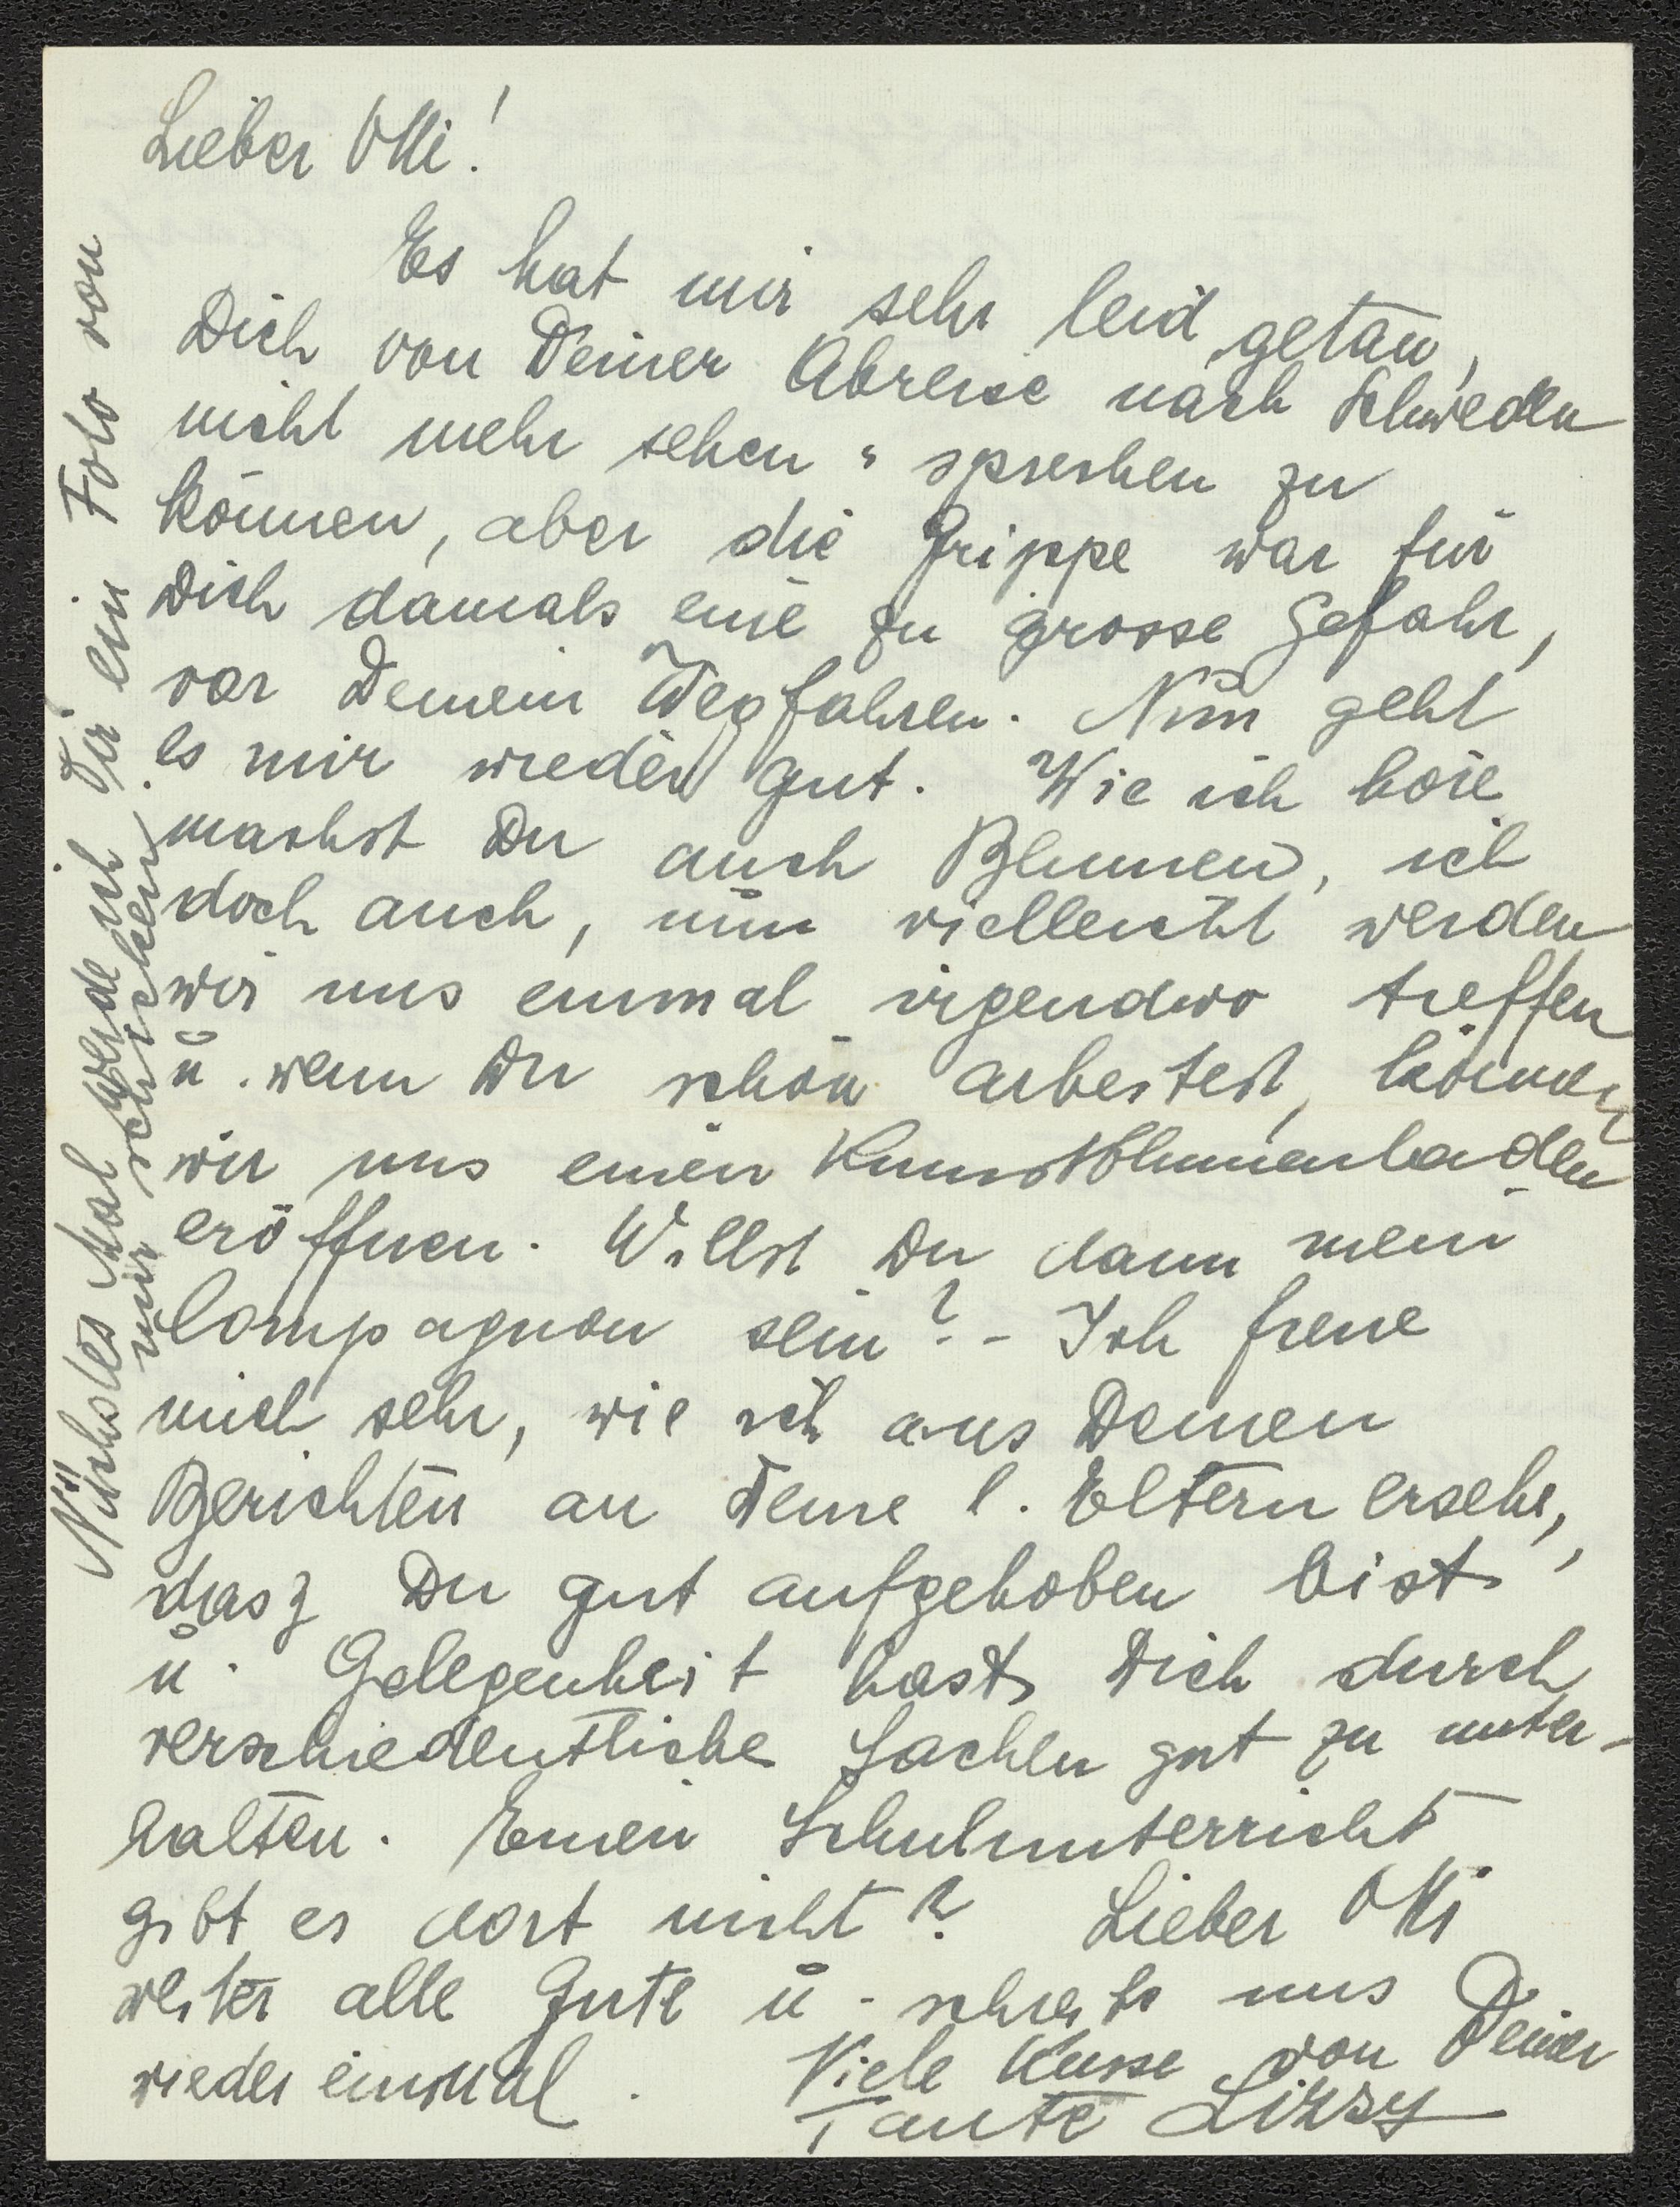 Lieber Otti!
Es hat mir sehr leid getan,
Dich von Deiner Abreise nach Schweden
nicht mehr sehen u sprechen zu
können, aber die Grippe war für
Dich damals eine zu grosse Gefahr,
vor Deinem Wegfahren. Nun geht
es mir wieder gut. Wie ich höre
machst Du auch Blumen, ich
doch auch, nun vielleicht werden
wir uns einmal irgendwo treffen
u. wenn Du schön arbeitest, können
wir uns einen Kunstblumenladen
eröffnen. Willst Du dann mein
Compagnon sein? - Ich freue
mich sehr, wie ich aus Deinen
Berichten an Deine l. Eltern ersehe,
dasz Du gut aufgehoben bist
u. Gelegenheit hast, Dich durch
verschiedentliche Sachen gut zu unter-
halten. Einen Schulunterricht
gibt es dort nicht? Lieber Otti
weiter alle Gute u. schreib uns
wieder einmal. Viele Küsse von Deiner
Tante Lizzy
Nächstes Mal werde ich Dir ein Foto von
mir schicken.